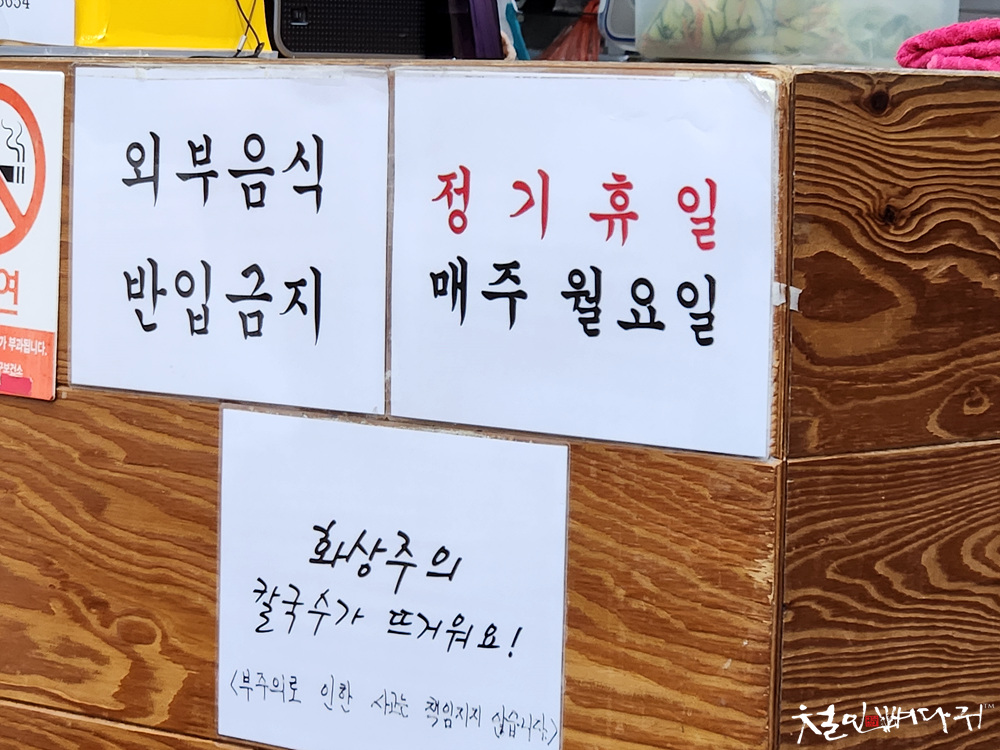 3654
외부음식
반입금지
정기휴일
매주 월요일
연
가 부과됩니다.
보건소
화상주의
칼국수가 뜨거워요!
<부주의로 인한 사고는 책임지지 않습니다>
철인뼈다귀™